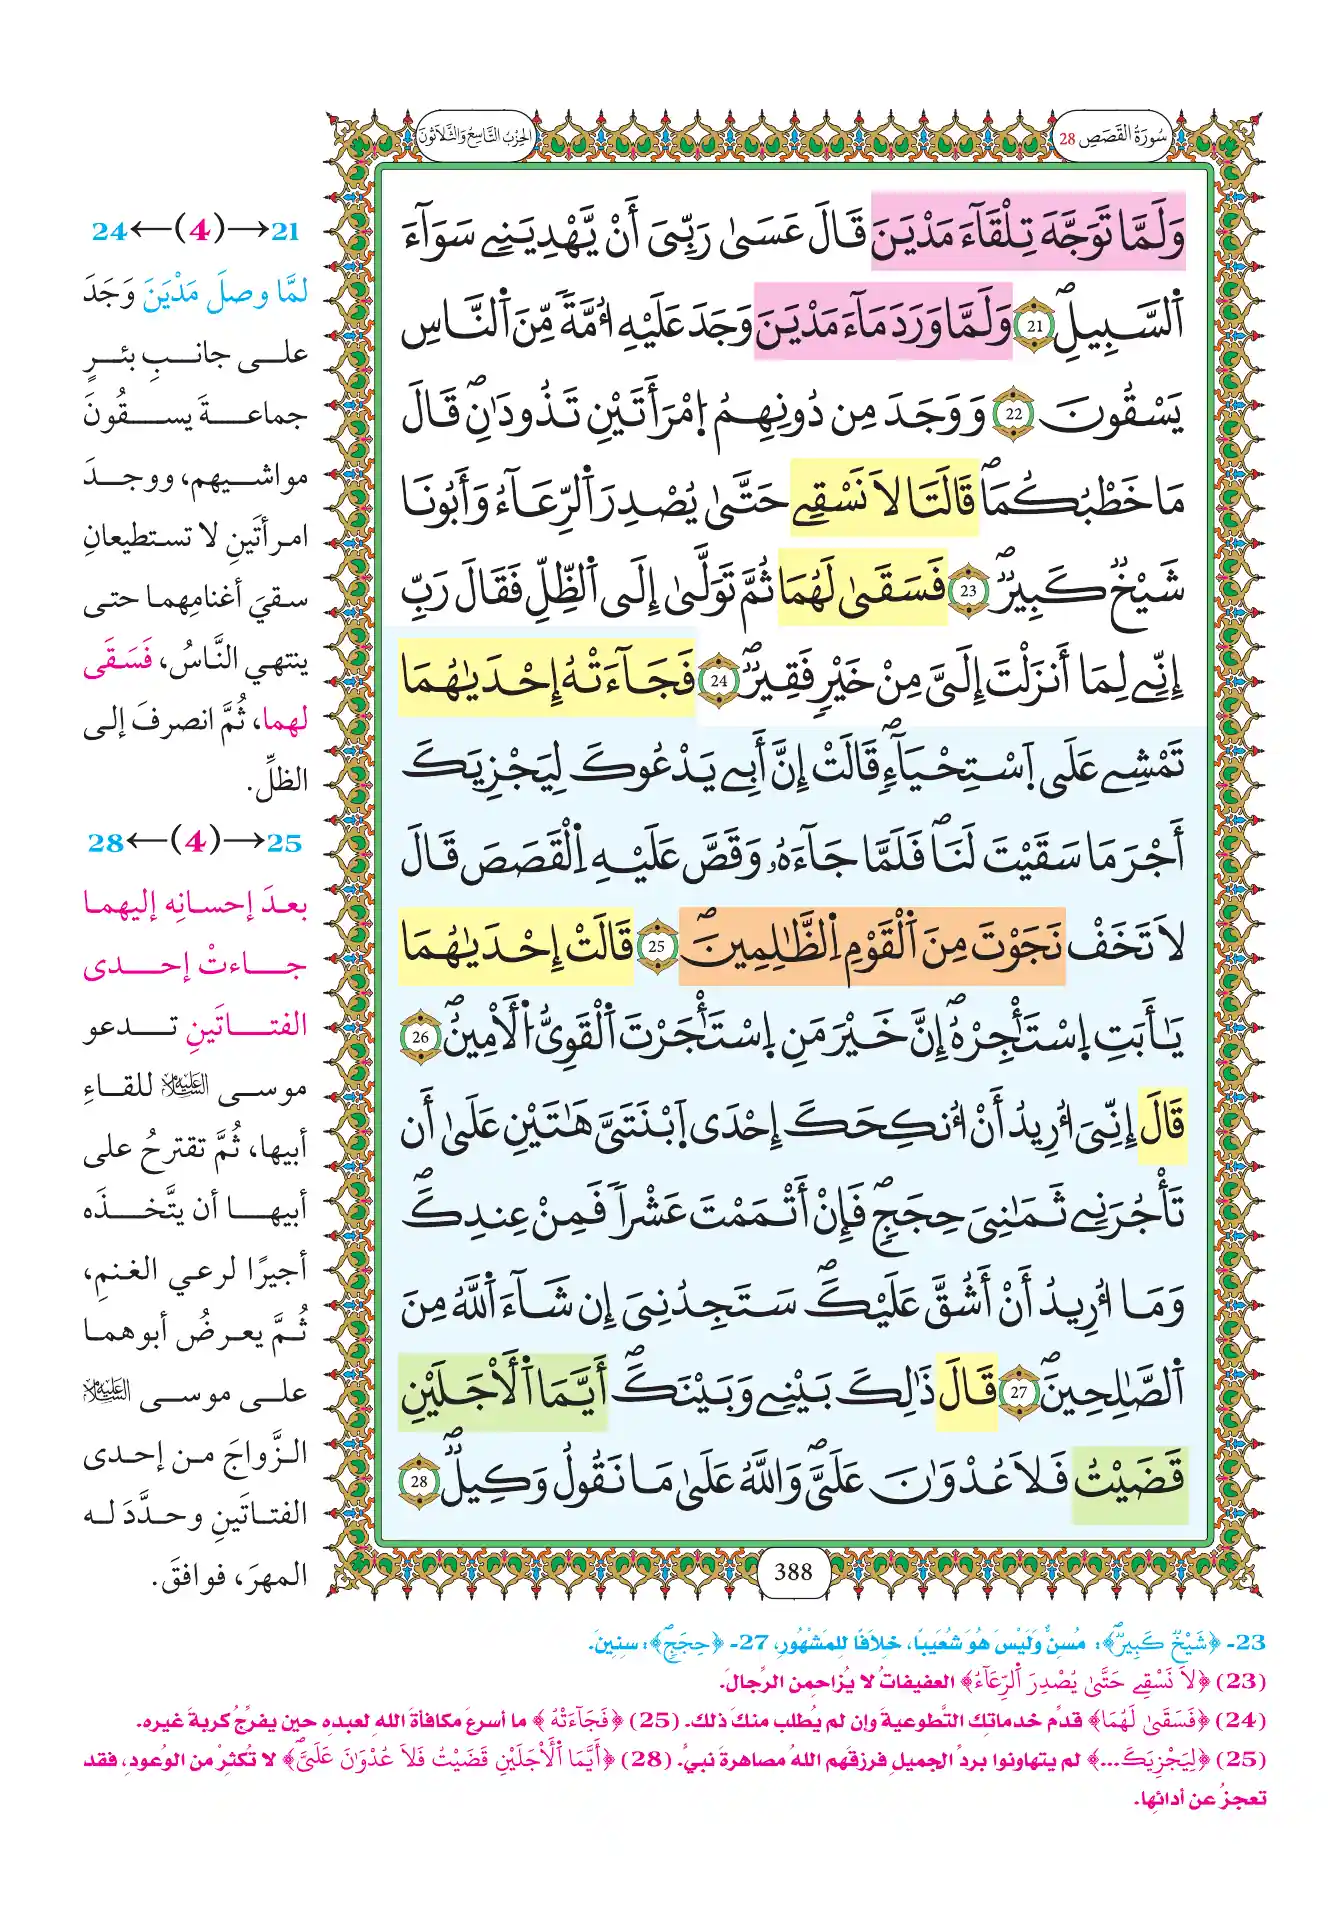 سُورَةُ القَصَصِ 28
الحِزْبُ التَّاسِعُ وَالثَّلَاثُونَ
وَلَمَّا تَوَجَّهَ تِلْقَآءَ مَدْيَنَ قَالَ عَسَىٰ رَبِّيَ أَنْ يَّهْدِيَنِے سَوَآءَ
اَ۬لسَّبِيلِۖ 21 وَلَمَّا وَرَدَ مَآءَ مَدْيَنَ وَجَدَ عَلَيْهِ أُمَّةٗ مِّنَ اَ۬لنَّاسِ
يَسْقُونَ 22 وَوَجَدَ مِن دُونِهِمُ اُ۪مْرَأَتَيْنِ تَذُودَٰنِۖ قَالَ
مَا خَطْبُكُمَاۖ قَالَتَا لَا نَسْقِے حَتَّىٰ يُصْدِرَ اَ۬لرِّعَآءُ وَأَبُونَا
شَيْخٞ كَبِيرٞۖ 23 فَسَقَىٰ لَهُمَا ثُمَّ تَوَلَّىٰ إِلَى اَ۬لظِّلِّ فَقَالَ رَبِّ
إِنِّے لِمَا أَنزَلْتَ إِلَيَّ مِنْ خَيْرٖ فَقِيرٞۖ 24 فَجَآءَتْهُ إِحْدَىٰهُمَا
تَمْشِے عَلَى اَ۪سْتِحْيَآءٖۖ قَالَتْ إِنَّ أَبِے يَدْعُوكَ لِيَجْزِيَكَ
أَجْرَ مَا سَقَيْتَ لَنَاۖ فَلَمَّا جَآءَهُۥ وَقَصَّ عَلَيْهِ اِ۬لْقَصَصَ قَالَ
لَا تَخَفْ نَجَوْتَ مِنَ اَ۬لْقَوْمِ اِ۬لظَّٰلِمِينَۖ 25 قَالَتْ إِحْدَىٰهُمَا
يَٰأَبَتِ اِ۪سْتَٰٔجِرْهُۖ إِنَّ خَيْرَ مَنِ اِ۪سْتَٰٔجَرْتَ اَ۬لْقَوِيُّ اُ۬لْأَمِينُۖ 26
قَالَ إِنِّيَ أُرِيدُ أَنْ أُنكِحَكَ إِحْدَى اَ۪بْنَتَيَّ هَٰتَيْنِ عَلَىٰ أَن
تَأْجُرَنِے ثَمَٰنِيَ حِجَجٖۖ فَإِنْ أَتْمَمْتَ عَشْراٗ فَمِنْ عِندِكَۖ
وَمَا أُرِيدُ أَنْ أَشُقَّ عَلَيْكَۖ سَتَجِدُنِيَ إِن شَآءَ اَ۬للَّهُ مِنَ
اَ۬لصَّٰلِحِينَۖ 27 قَالَ ذَٰلِكَ بَيْنِے وَبَيْنَكَۖ أَيَّمَا اَ۬لْأَجَلَيْنِ
قَضَيْتُ فَلَا عُدْوَٰنَ عَلَيَّۖ وَاللَّهُ عَلَىٰ مَا نَقُولُ وَكِيلٞۖ 28
388
21→(4)←24
لمَّا وصلَ مَدْيَنَ وَجَدَ
على جانبِ بئرٍ
جماعةَ يسقُونَ
مواشيهم، ووجدَ
امرأتَينِ لا تستطيعانِ
سقيَ أغنامِهما حتى
ينتهي النَّاسُ، فَسَقَى
لهما، ثُمَّ انصرفَ إلى
الظلِّ.
25→(4)←28
بعدَ إحسانِه إليهما
جاءتْ إحدى
الفتاتَينِ تدعو
موسى عليه السلام للقاءِ
أبيها، ثُمَّ تقترحُ على
أبيها أن يتَّخذَه
أجيرًا لرعي الغنمِ،
ثُمَّ يعرضُ أبوهما
على موسى عليه السلام
الزَّواجَ من إحدى
الفتاتَينِ وحدَّدَ له
المهرَ، فوافقَ.
23- ﴿شَيْخٞ كَبِيرٞۖ﴾: مُسِنٌّ وَلَيْسَ هُوَ شُعَيبًا، خلافًا للمَشْهُورِ، 27- ﴿حِجَجٖۖ﴾: سنِينَ.
(23) ﴿لَا نَسْقِے حَتَّىٰ يُصْدِرَ اَ۬لرِّعَآءُ﴾ العفيفاتُ لا يُزاحمن الرِّجالَ.
(24) ﴿فَسَقَىٰ لَهُمَا﴾ قدِّم خدماتكَ التَّطوعيةَ وإن لم يُطلب منكَ ذلك. (25) ﴿فَجَآءَتْهُ﴾ ما أسرعَ مكافأةَ اللهِ لعبدِهِ حين يفرِّجُ كربةَ غيرِه.
(25) ﴿لِيَجْزِيَكَ...﴾ لم يتهاونوا بردِّ الجميلِ فرزقَهم اللهُ مصاهرةَ نبيٍّ. (28) ﴿أَيَّمَا اَ۬لْأَجَلَيْنِ قَضَيْتُ فَلَا عُدْوَٰنَ عَلَيَّۖ﴾ لا تُكثِرْ من الوُعودِ، فقد
تعجزُ عن أدائِها.